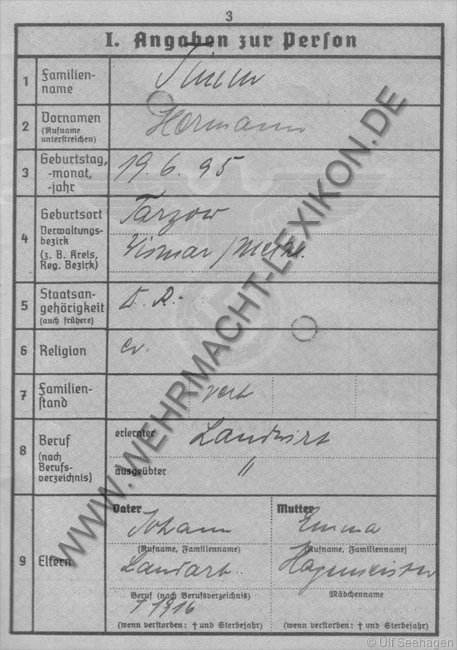 3
I. Angaben zur Person
1 Familien-
name
2 Vornamen Hermann
(Rufname
unterstreichen)
3 Geburtstag, 19. 6. 95
-monat,
-jahr
4 Geburtsort Tarzow
Verwaltungs-
bezirk
(z. B. Kreis, Wismar / Meckl.
Reg. Bezirk)
5 Staatsan- D. R.
gehörigkeit
(auch frühere)
6 Religion ev.
7 Familien- verh
stand
8 Beruf erlernter Landwirt
(nach
Berufs- ausgeübter "
verzeichnis)
9 Eltern
Vater Mutter
Johann Emma
(Rufname, Familienname) (Rufname, Familienname)
Landarb. Hagemeister
Beruf (nach Berufsverzeichnis) Mädchenname
† 1916
(wenn verstorben: † und Sterbejahr) (wenn verstorben: † und Sterbejahr)
WWW.WEHRMACHT-LEXIKON.DE
© Ulf Seehagen